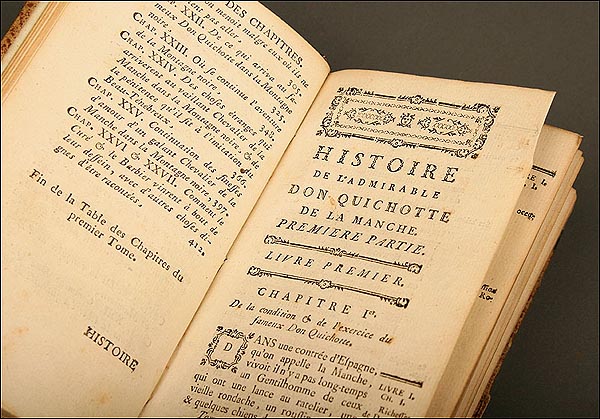 DES CHAPITRES.
menoit malgré eux où ils ne
pas aller,
CHAP. XXII. De ce qui arriva au fameux Don Quichotte dans la Montagne
noire,
CHAP. XXIII. Où se continue l'aventure
de la Montagne noire,
CHAP. XXIV. Des choses étranges qui
arriverent au vaillant Chevalier de la
Manche dans la Montagne noire, & de
la pénitence qu'il fit à l'imitation du
Beau Ténébreux,
CHAP. XXV. Continuation des finesses
d'amour d'un galant Chevalier de la
Manche dans la Montagne noire, 397.
CHAP. XXVI & XXVII. Comment le
Curé & le Barbier vinrent à bout de
leur dessein, avec d'autres choses di-
gnes d'être racontées. 412.
Fin de la Table des Chapitres du
premier Tome.
HISTOIRE,
HISTOIRE
DE L'ADMIRABLE
DON QUICHOTTE
DE LA MANCHE.
PREMIERE PARTIE.
LIVRE PREMIER.
CHAPITRE Ier.
De la condition & de l'exercice du
fameux Don Quichotte.
DANS une contrée d'Espagne,
qu'on appelle la Manche,
vivoit il n'y a pas long-temps
un Gentilhomme de ceux
qui ont une lance au ratelier, une
vieille rondache, un roussin
& quelques chiens
LIVRE I.
CH. I.